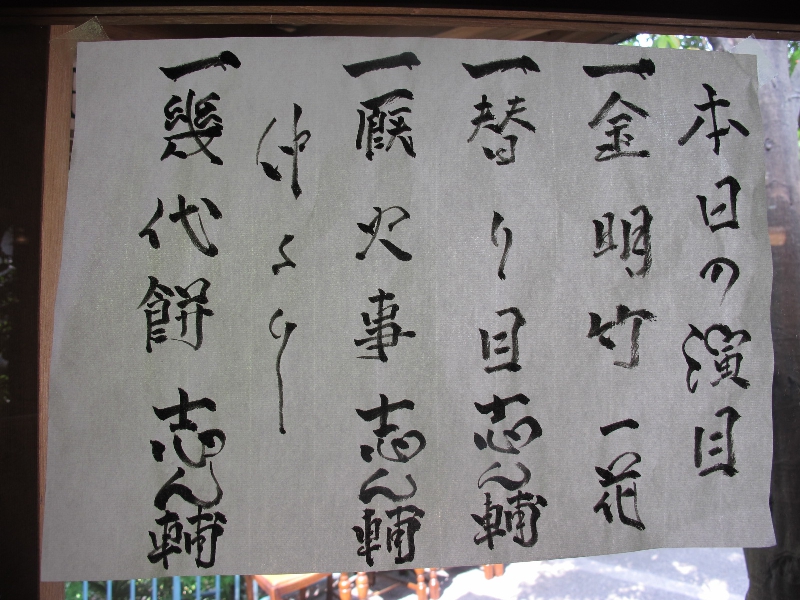 本日の演目
一金明竹 一花
一替り目 志ん輔
一厩火事 志ん輔
仲より
一幾代餅 志ん輔